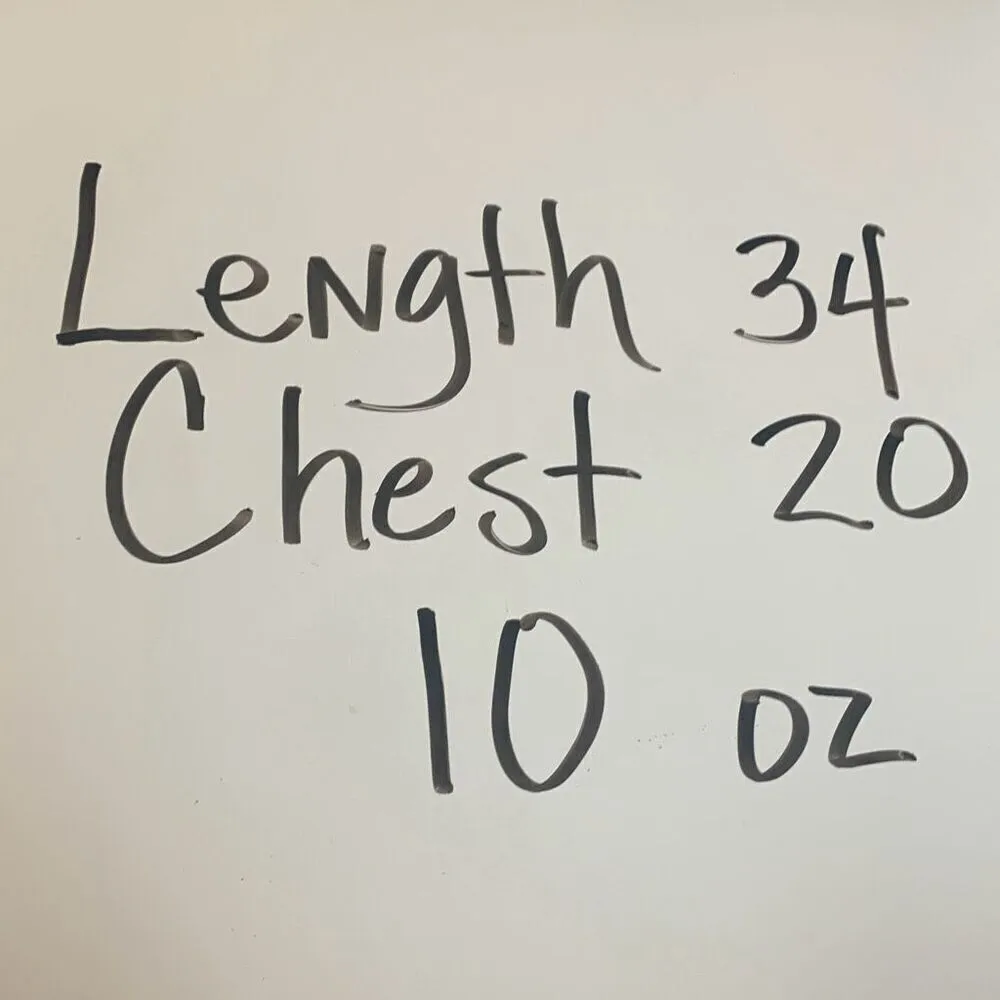 Length 34
Chest 20
10 oz